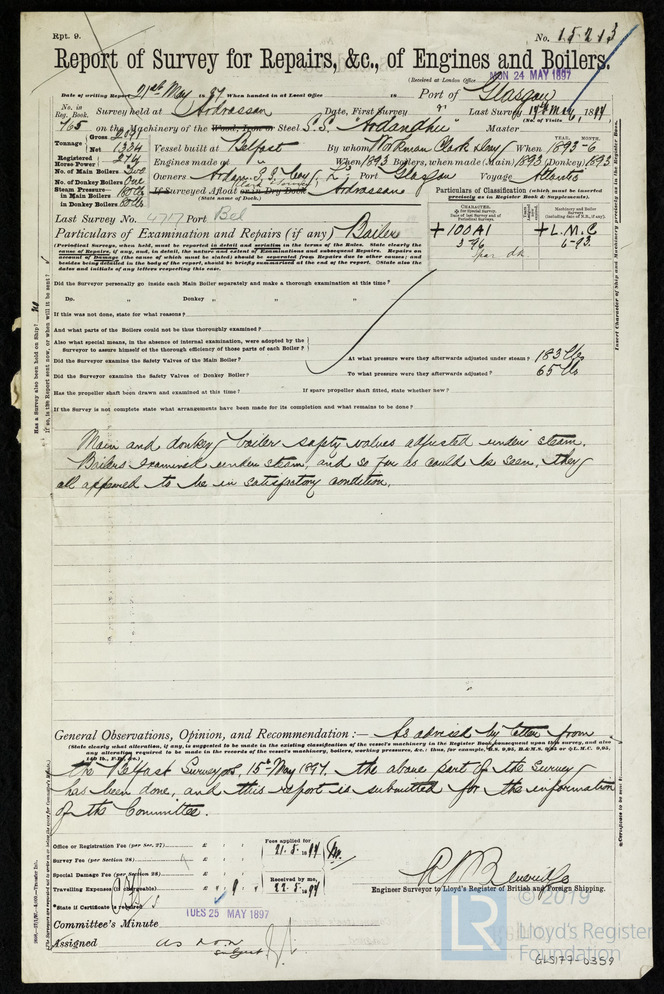 Rpt. 9.
No. 15213
Report of Survey for Repairs, &c., of Engines and Boilers.
(Received at London Office MON 24 MAY 1897
Date of writing Report 21st May 1897 When handed in at Local Office Port of Glasgow
No. in Reg. Book. Survey held at Ardrossan Date, First Survey Last Survey 1897
(No. of Visits
on the Machinery of the Wood, Iron or Steel S.S. Master
Tonnage Gross Net 1304 Vessel built at Belfast By whom Workman Clark & Coy When 1893-6
YEAR. MONTH.
Registered Horse Power 274 Engines made at " When 1893 Boilers, when made (Main) 1893 (Donkey) 1893
No. of Main Boilers Two Owners Port Glasgow Voyage Atlantic
No. of Donkey Boilers One
Steam Pressure in Main Boilers
in Donkey Boilers
If Surveyed Afloat or in Dry Dock Ardrossan
(State name of Dock.)
Particulars of Classification (which must be inserted precisely as in Register Book & Supplements).
Last Survey No. 4717 Port Bel
Particulars of Examination and Repairs (if any) Boilers
+100A1
3-96
+L.M.C
6-93
(Periodical Surveys, when held, must be reported in detail and seriatim in the terms of the Rules. State clearly the
cause of Repairs, if any, and, in detail, the nature and extent of Examinations and subsequent Repairs. Repairs on
account of Damage (the cause of which must be stated) should be separated from Repairs due to other causes; and
besides being detailed in the body of the report, should be briefly summarised at the end of the report. State also the
dates and initials of any letters respecting this case.
Did the Surveyor personally go inside each Main Boiler separately and make a thorough examination at this time?
Do. " Donkey " " "
If this was not done, state for what reasons?
And what parts of the Boilers could not be thoroughly examined?
Also what special means, in the absence of internal examination, were adopted by the
Surveyor to assure himself of the thorough efficiency of those parts of each Boiler?
Did the Surveyor examine the Safety Valves of the Main Boiler? At what pressure were they afterwards adjusted under steam? 183 lbs
Did the Surveyor examine the Safety Valves of Donkey Boiler? To what pressure were they afterwards adjusted? 65 lbs
Has the propeller shaft been drawn and examined at this time? If spare propeller shaft fitted, state whether new?
If the Survey is not complete state what arrangements have been made for its completion and what remains to be done?
Main and donkey boiler safety valves adjusted under steam.
Boilers examined under steam, and so far as could be seen, they
all appeared to be in satisfactory condition.
General Observations, Opinion, and Recommendation:— As advised by letter from
(State clearly what alteration, if any, is suggested to be made in the existing classification of the vessel's machinery in the Register Book consequent upon this survey, and also
the Belfast Surveyors, 15th May 1897, the above part of the Survey
has been done, and this report is submitted for the information
of the Committee.
Office or Registration Fee (per Sec. 27)
Survey Fee (per Section 28)
Special Damage Fee (per Section 28)
Travelling Expenses (if chargeable)
Fees applied for
21.5.1897
Received by me,
22.5.1897
Engineer Surveyor to Lloyd's Register of British and Foreign Shipping.
State if Certificate is required
Committee's Minute TUES 25 MAY 1897
Assigned as now
© 2019
LR
Lloyd's Register
Foundation
GLS177-0359